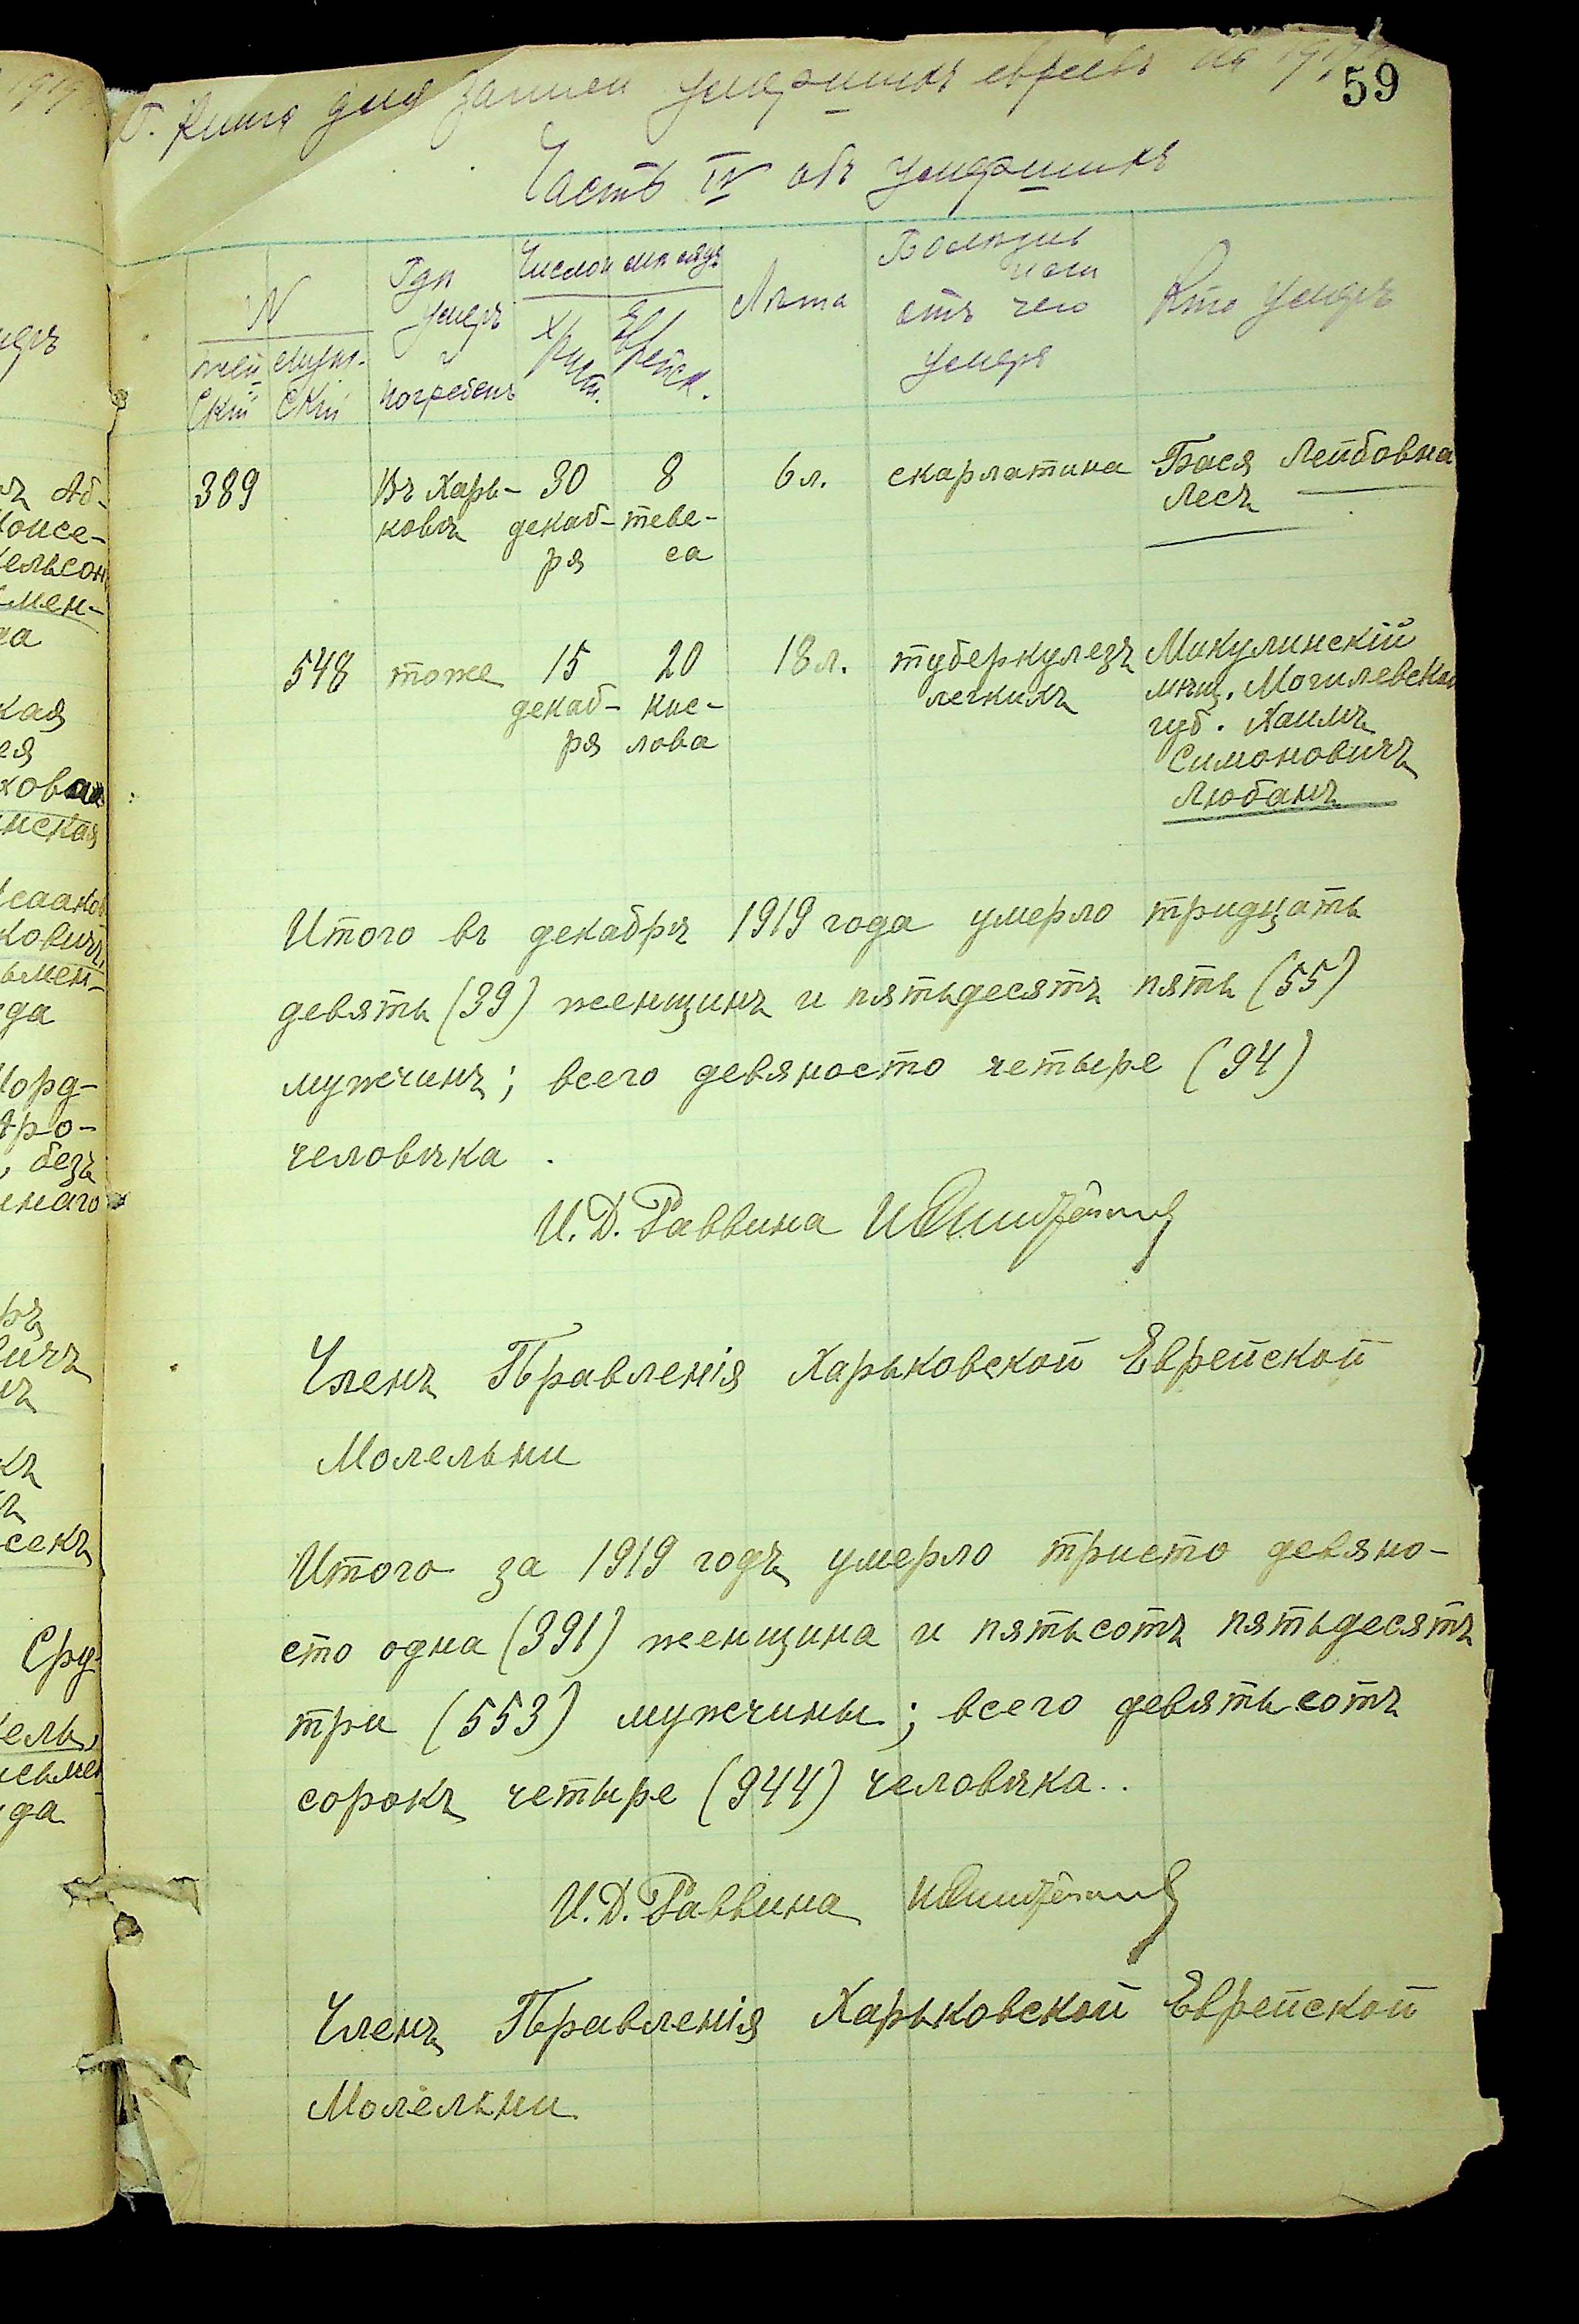 Книга для записи умершихъ евреевъ на 1919
59
Часть IV объ умершихъ
N
жен-
скій
мужс-
скій
Гдѣ
умеръ
и
погребенъ
Число и мѣсяцъ
Христ.
Еврейск.
Лѣта
Болѣзнь
или
отъ чего
умеръ
Кто умеръ
389
Въ Харь-
ковѣ
30
декаб-
ря
8
теве-
са
6 л.
скарлатина
Бася Лейбовна
Лесъ
548
тоже
15
декаб-
ря
20
кис-
лова
18 л.
туберкулезъ
легкихъ
Микулинскій
мѣщ. Могилевской
губ. Хаимъ
Симоновичъ
Любанъ
Итого въ декабрѣ 1919 года умерло тридцать
девять (39) женщинъ и пятьдесятъ пять (55)
мужчинъ; всего девяносто четыре (94)
человѣка.
И. Д. Раввина
Членъ Правленія Харьковской Еврейской
Молельни
Итого за 1919 годъ умерло тристо девяно-
сто одна (391) женщина и пятьсотъ пятьдесятъ
три (553) мужчины; всего девятьсотъ
сорокъ четыре (944) человѣка..
И. Д. Раввина
Членъ Правленія Харьковской Еврейской
Молельни